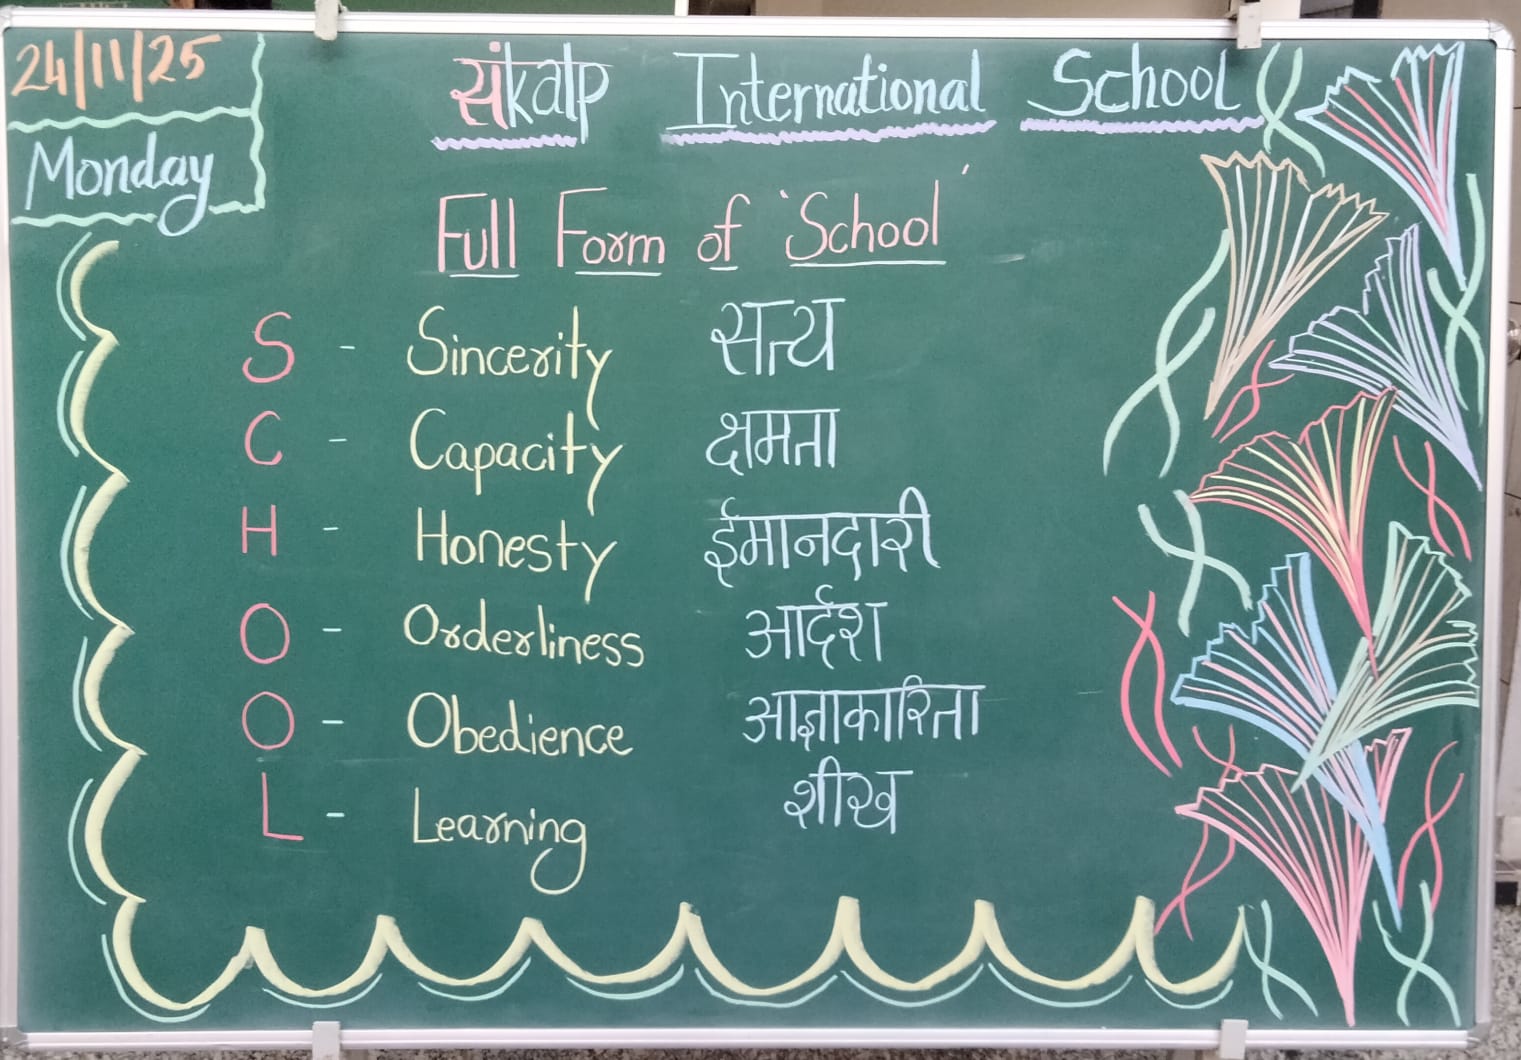 24/11/25
Monday
संkalp International School
Full Form of 'School'
S - Sincerity सत्य
C - Capacity क्षमता
H - Honesty ईमानदारी
O - Orderliness आर्दश
O - Obedience आज्ञाकारिता
L - Learning शीख